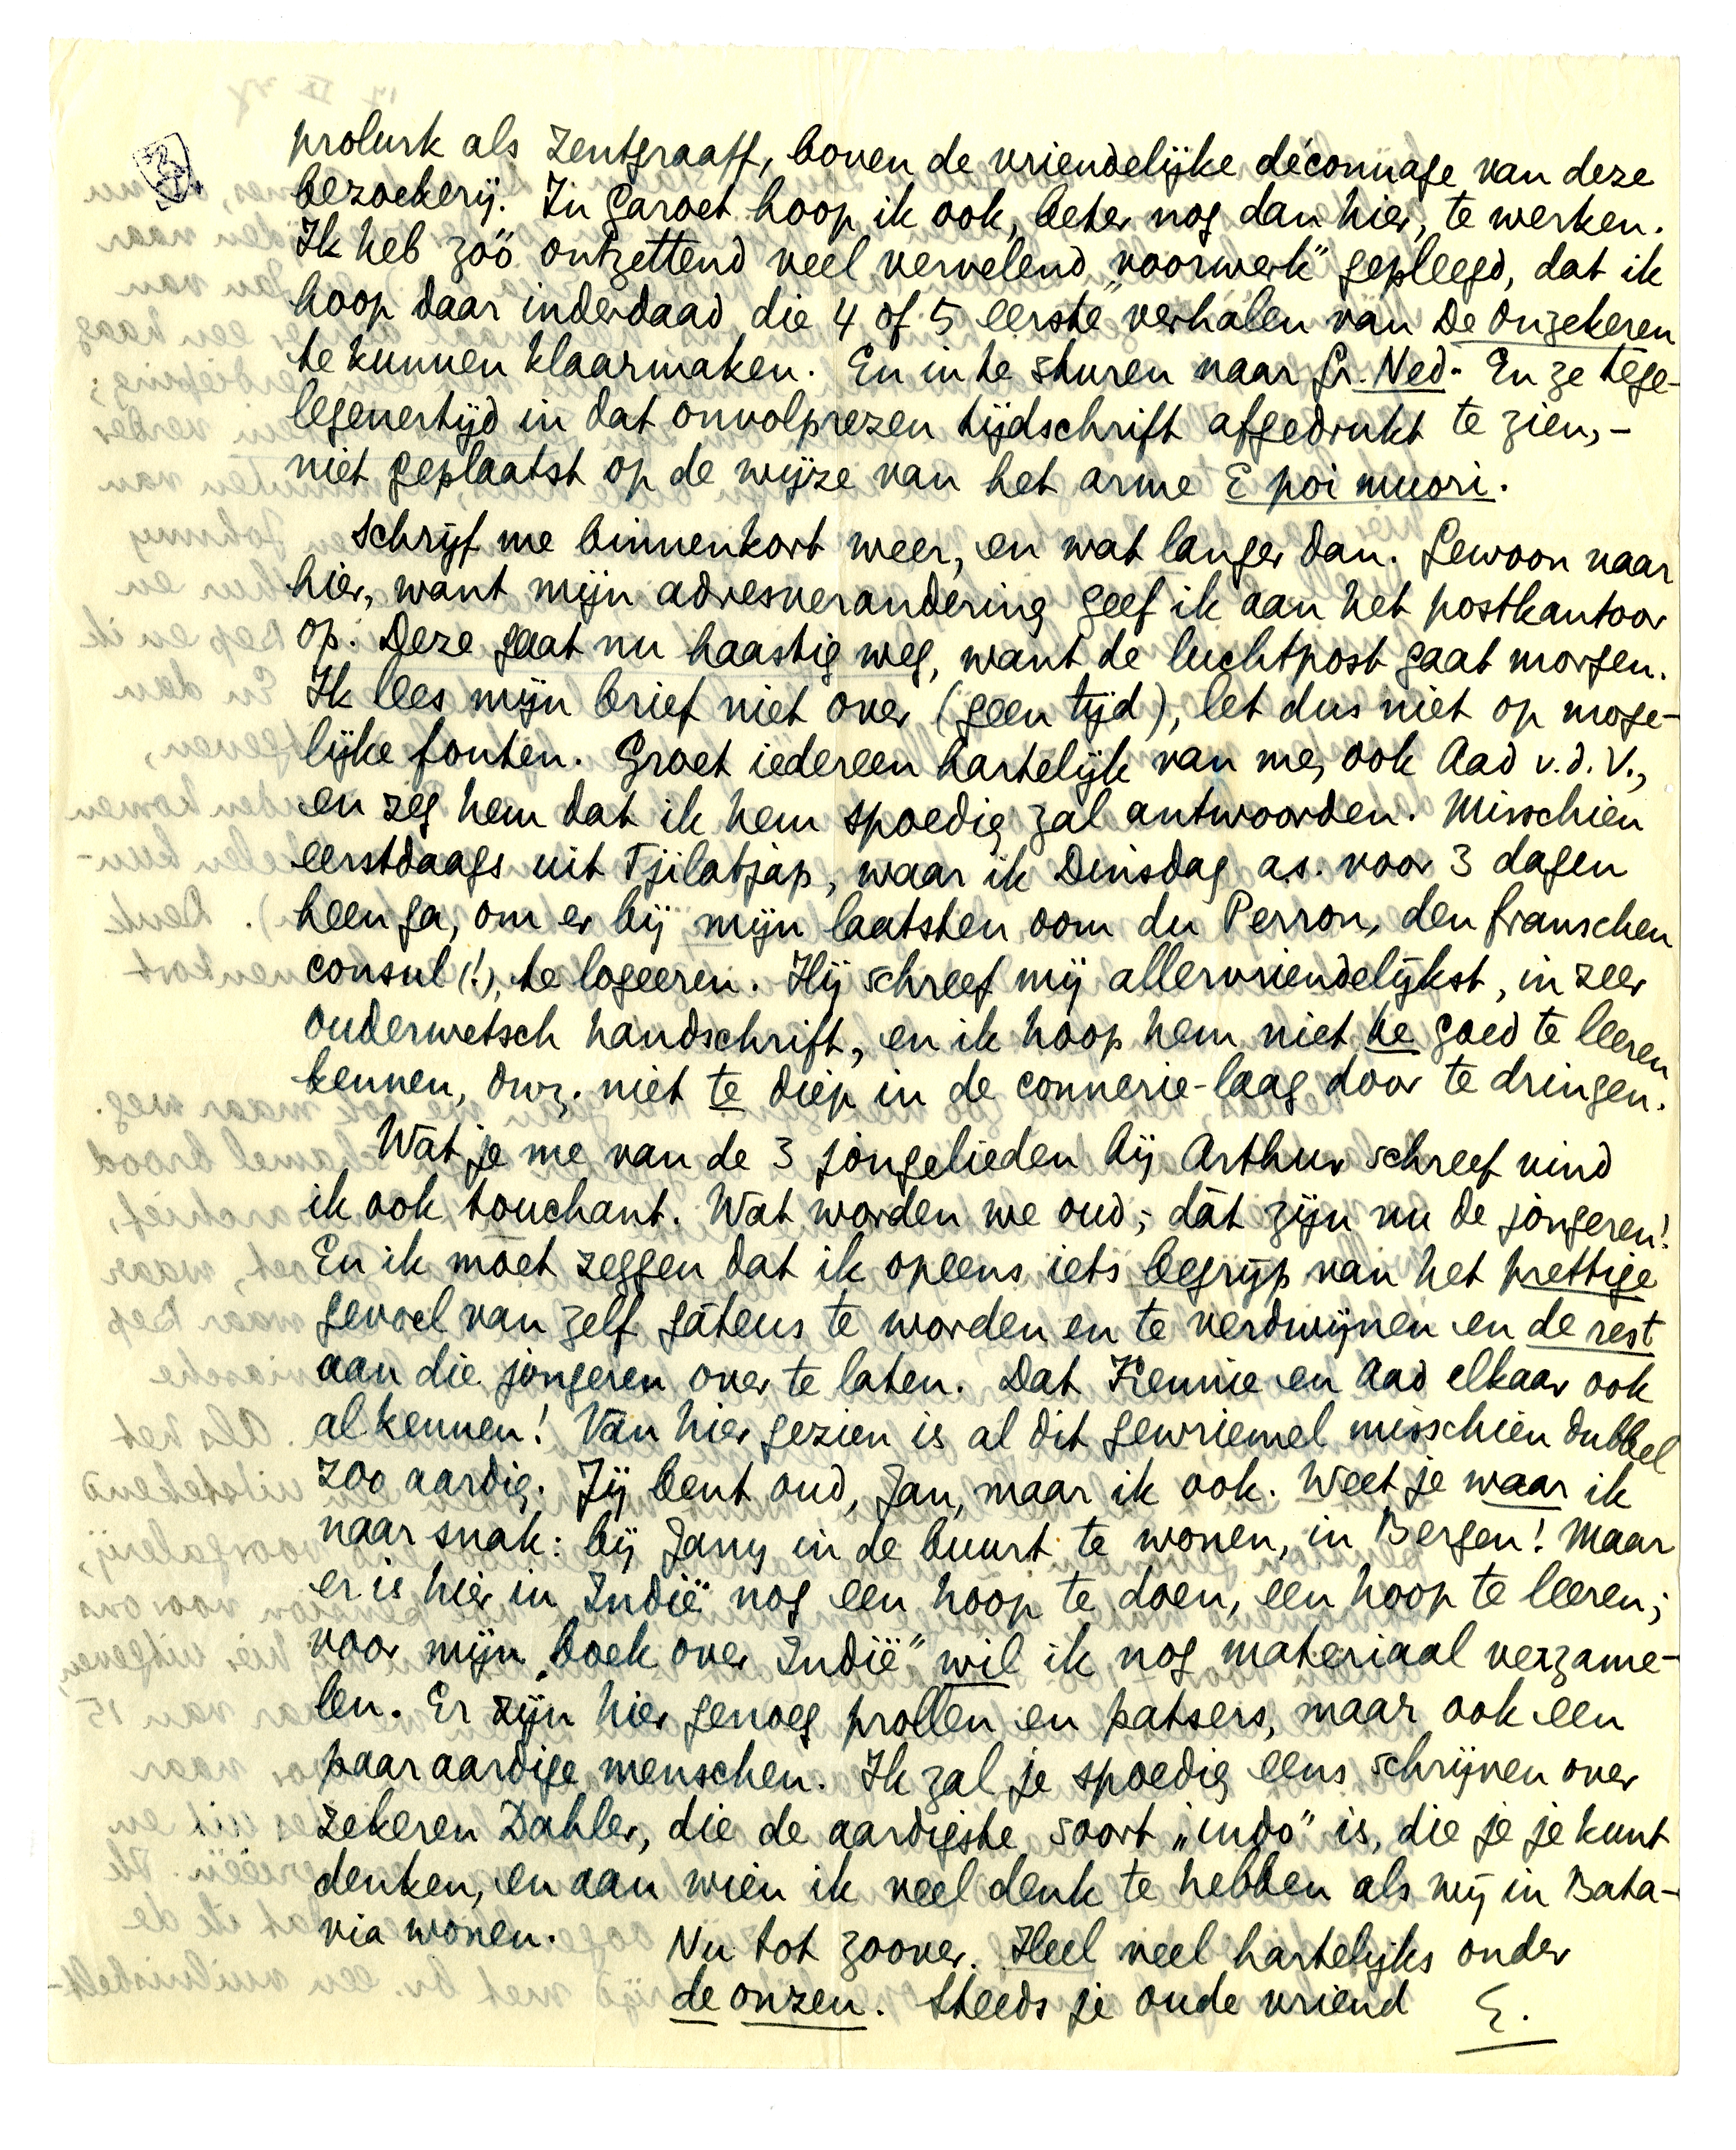 prolurk als Zentgraaff, boven de vriendelijke déconnage van deze
bezoekerij. In Garoet hoop ik ook, beter nog dan hier, te werken.
Ik heb zóó ontzettend veel vervelend „voorwerk” gepleegd, dat ik
hoop daar inderdaad die 4 of 5 eerste verhalen van De Onzekeren
te kunnen klaarmaken. En in te sturen naar Gr. Ned. En ze tege-
legenertijd in dat onvolprezen tijdschrift afgedrukt te zien, -
niet geplaatst op de wijze van het arme E poi muori.
Schrijf me binnenkort weer, en wat langer dan. Gewoon naar
hier, want mijn adresverandering geef ik aan het postkantoor
op. Deze gaat nu haastig weg, want de luchtpost gaat morgen.
Ik lees mijn brief niet over (geen tijd), let dus niet op moge-
lijke fouten. Groet iedereen hartelijk van me, ook Aad v.d. V.,
en zeg hem dat ik hem spoedig zal antwoorden. Misschien
eerstdaags uit Tjilatjap, waar ik Dinsdag a.s. voor 3 dagen
heen ga, om er bij mijn laatsten oom du Perron, den franschen
consul (!), te logeeren. Hij schreef mij allervriendelijkst, in zeer
ouderwetsch handschrift, en ik hoop hem niet te goed te leeren
kennen, dwz. niet te diep in de connerie-laag door te dringen.
Wat je me van de 3 jongelieden bij Arthur schreef vind
ik ook touchant. Wat worden we oud; dàt zijn nu de jongeren!
En ik moet zeggen dat ik opeens iets begrijp van het prettige
gevoel van zelf gâteus te worden en te verdwijnen en de rest
aan die jongeren over te laten. Dat Kennie en Aad elkaar ook
al kennen! Van hier gezien is al dit gewriemel misschien dubbel
zoo aardig. Jij bent oud, Jan, maar ik ook. Weet je waar ik
naar snak: bij Jany in de buurt te wonen, in Bergen! Maar
er is hier in Indië nog een hoop te doen, een hoop te leeren;
voor mijn „boek over Indië” wil ik nog materiaal verzame-
len. Er zijn hier genoeg prollen en patsers, maar ook een
paar aardige menschen. Ik zal je spoedig eens schrijven over
zekeren Dahler, die de aardigste soort „indo” is, die je je kunt
denken, en aan wien ik veel denk te hebben als wij in Bata-
via wonen.
Nu tot zoover. Heel veel hartelijks onder
de onzen. Steeds je oude vriend E.